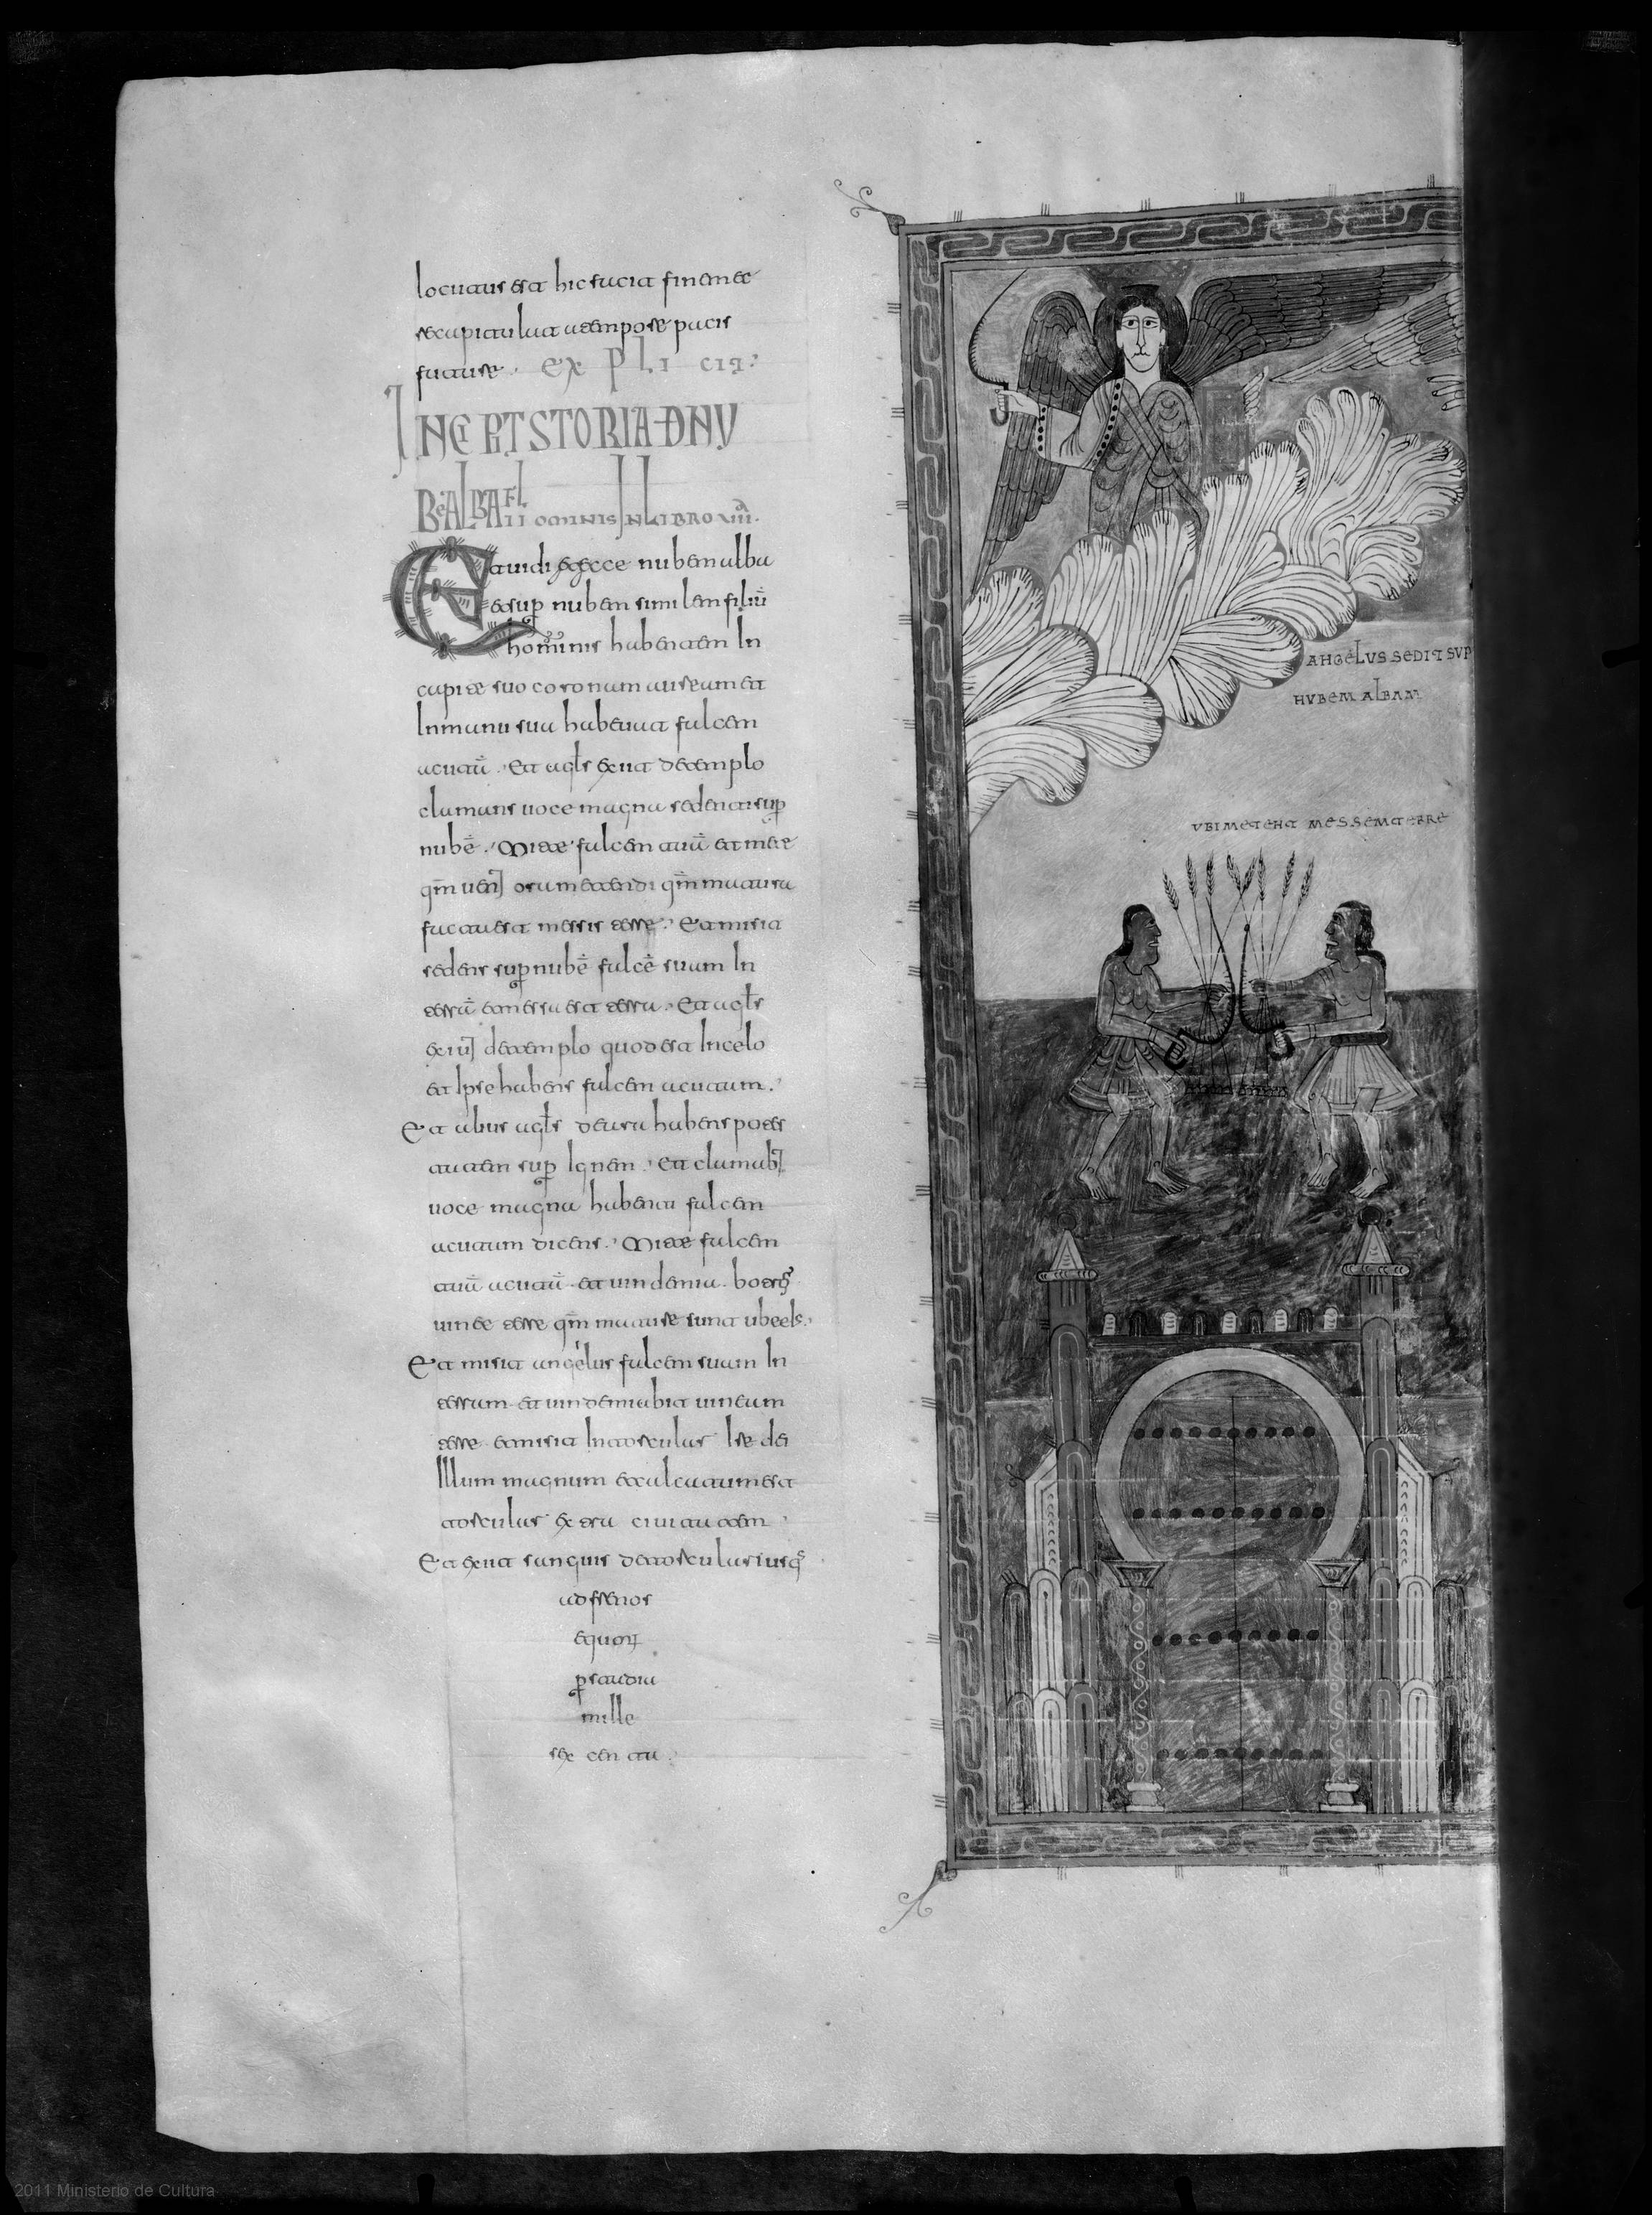 locutus est hic facit finem et
recapitulat a tempore pacis
future. EXPLICIT:
INCIPIT STORIA D NU
BE ALBA FILII OMINIS IN LIBRO VIII.
Et uidi et ecce nubem alba
et sup nubem similem filiū
hominis habentem In
capite suo coronam auream et
In manu sua habebat falcem
acutā. Et agls exiit de templo
clamans uoce magna sedenti sup
nubē. Mitte falcem tuā et mete
qm uenit ora metendi qm matura
facta est messis terre. Et misit
sedens sup nubē falcē suam In
terrā et messa est terra. Et agls
exiit de templo quod est In celo
et Ipse habens falcem acutam.
Et alius agls de ara habens potes
tatem sup Ignem. Et clamabit
uoce magna habenti falcem
acutam dicens. Mitte falcem
tuā acutā et uindemia botros
uinee terre qm mature sunt ube eius.
Et misit angelus falcem suam In
terram et uindemiabit uineam
terre et misit In torcular Ire dei
Illum magnum et calcatum est
torcular extra ciuitatem
Et exiit sanguis de torcular usq
ad frenos
equor
p stadia
mille
sexcenta.
ANGELUS SEDIT SUP
NUBEM ALBAM
UBI METENT MESSEM TERRE